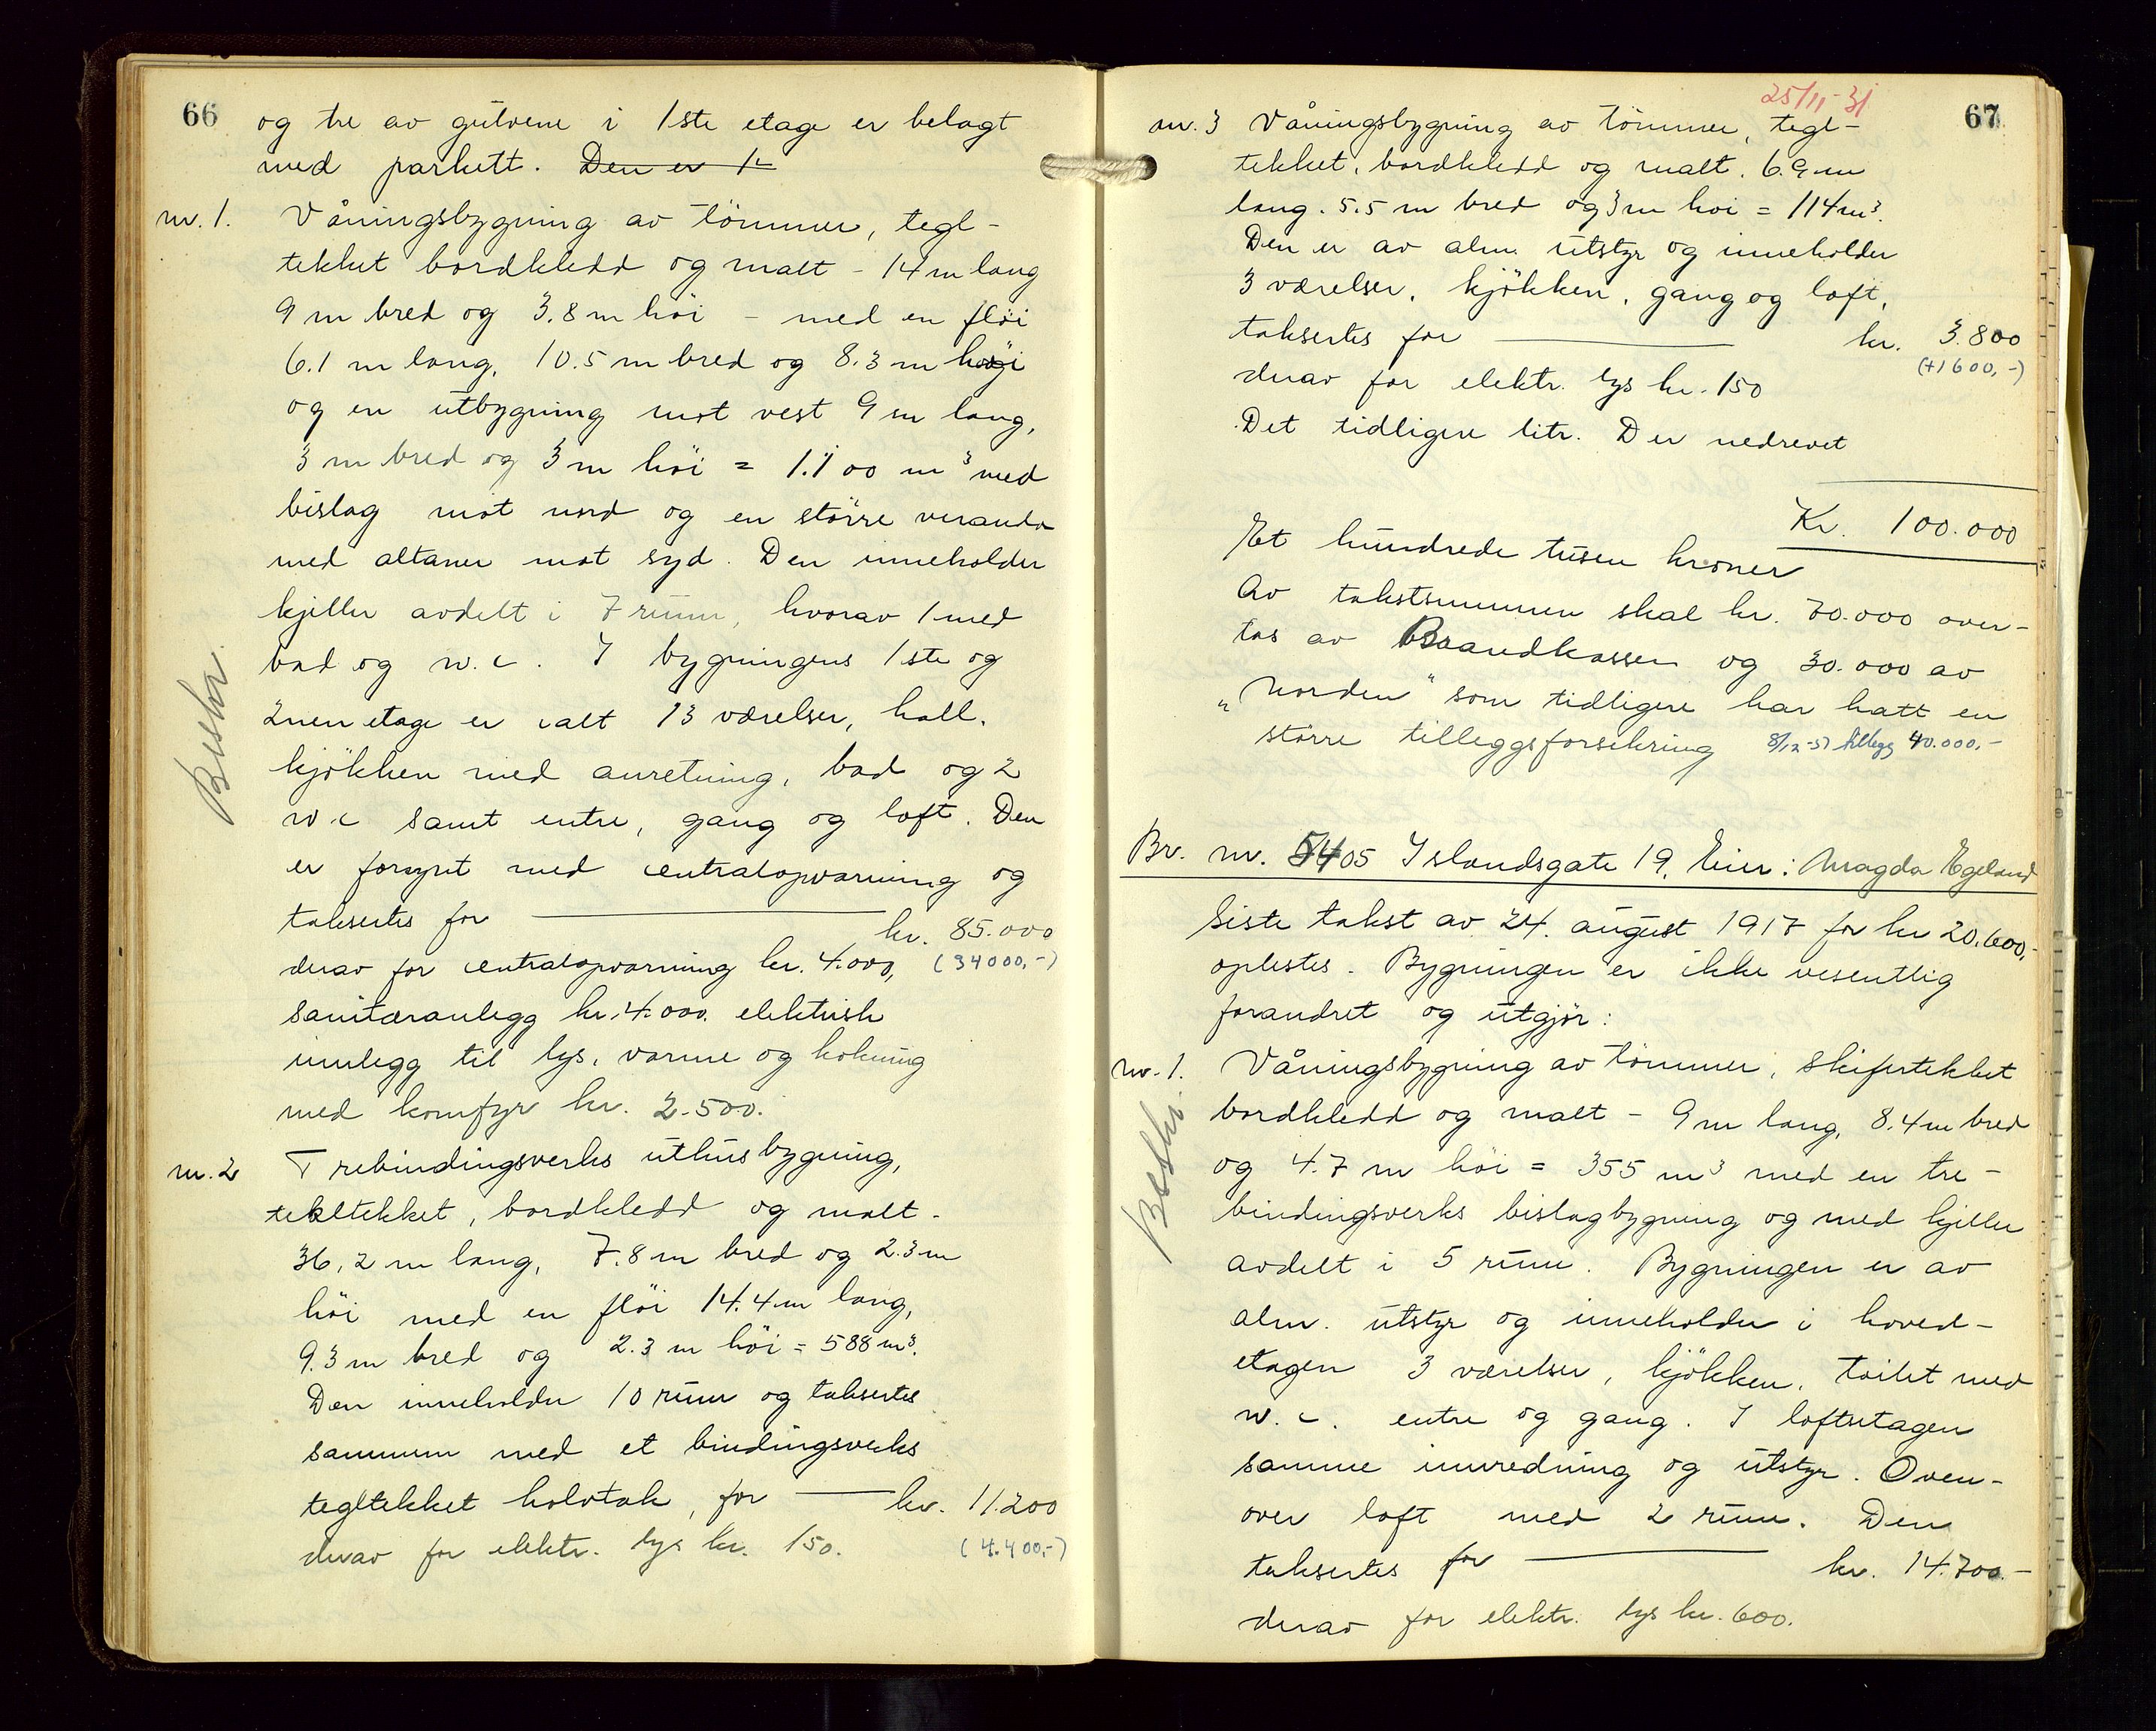 66
og tre av gulvene i 1ste etage er belagt
med parkett. Den er 1
nr. 1. Våningsbygning av tömmer, tegl-
tekket bordkledd og malt - 14 m lang
9 m bred og 3.8 m höi - med en flöi
6.1 m lang, 10.5 m bred og 8.3 m höi
og en utbygning mot vest 9 m lang,
3 m bred og 3 m höi = 1.100 m³ med
bislag mot nord og en större veranda
med altaner mot syd. Den inneholder
kjeller avdelt i 7 rum, hvorav 1 med
bad og w.c. I bygningens 1ste og
2nen etage er ialt 13 værelser, hall,
kjökken med anretning, bad og 2
w c samt entre, gang og loft. Den
er forsynt med centralopvarming og
takseres for kr. 85.000
derav for centralopvarming kr. 4.000, (34000,-)
sanitæranlegg kr. 4.000. elektrisk
innlegg til lys, varme og kokning
med komfyr kr. 2.500.
Beskr.
nr. 2 Trebindingsverks uthusbygning,
tegltekket, bordkledd og malt -
36,2 m lang, 7.8 m bred og 2.3 m
höi med en flöi 14.4 m lang,
9.3 m bred og 2.3 m höi = 588 m³.
Den inneholder 10 rum og taksertes
sammen med et bindingsverks
tegltekket halvtak, for kr. 11.200
derav for elektr. lys kr. 150. (4.400,-)
25/11-31
67
nr. 3 Våningsbygning av tömmer, tegl-
tekket, bordkledd og malt. 6.9 m
lang. 5.5 m bred og 3 m höi = 114 m³.
Den er av alm. utstyr og inneholder
3 værelser, kjökken, gang og loft,
taksertes for kr. 3.800
(+1600,-)
derav for elektr. lys kr. 150
Det tidligere litr. D er nedrevet
Kr. 100.000
Et hundrede tusen kroner
Av takstsummen skal kr. 70.000 over-
tas av Brandkassen og 30.000 av
"Norden" som tidligere har hatt en
större tilleggsforsikring 8/12-51 tillegg 40.000,-
Br. nr. 5405 Islandsgate 19. Eier: Magda Egeland
Siste takst av 24. august 1917 for kr 20.600,-
oplestes. Bygningen er ikke vesentlig
forandret og utgjör:
nr. 1. Våningsbygning av tömmer, skifertekket
bordkledd og malt - 9 m lang, 8.4 m bred
og 4.7 m höi = 355 m³ med en tre-
bindingsverks bislagbygning og med kjeller
avdelt i 5 rum. Bygningen er av
alm. utstyr og inneholder i hoved-
etagen 3 værelser, kjökken, toilet med
w. c. entre og gang. I loftsetagen
samme innredning og utstyr. Oven-
over loft med 2 rum. Den
taksertes for kr. 14.700.-
derav for elektr. lys kr. 600.
Beskr.